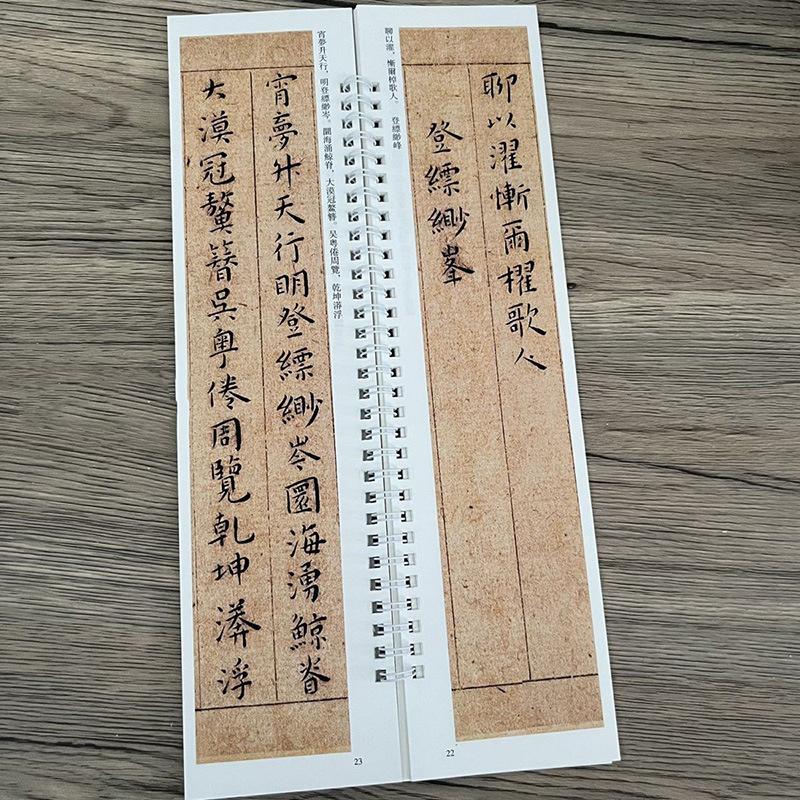 聊以濯慚爾櫂歌人
登縹緲峯
聊以濯，慚爾棹歌人。 登縹緲峰
22
宵夢升天行明登縹緲岑圜海湧鯨脊
大漠冠鰲簪吳粵倦周覽乾坤漭浮
宵夢升天行，明登縹緲岑。圜海涌鯨脊，大漠冠鰲簪。吴粤倦周覽，乾坤漭浮
23